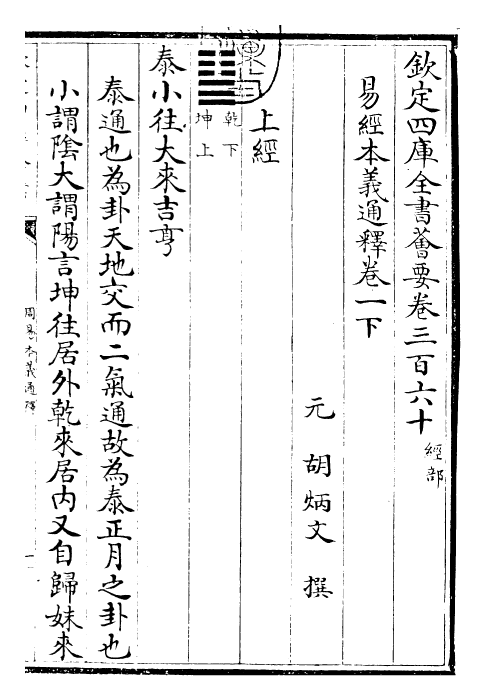 欽定四庫全書薈要卷三百六十 經部
易經本義通釋卷一下
元 胡炳文 撰
上經
乾下
坤上
泰小往大來吉亨
泰通也為卦天地交而二氣通故為泰正月之卦也
小謂陰大謂陽言坤往居外乾來居内又自歸妹來
周易本義通釋